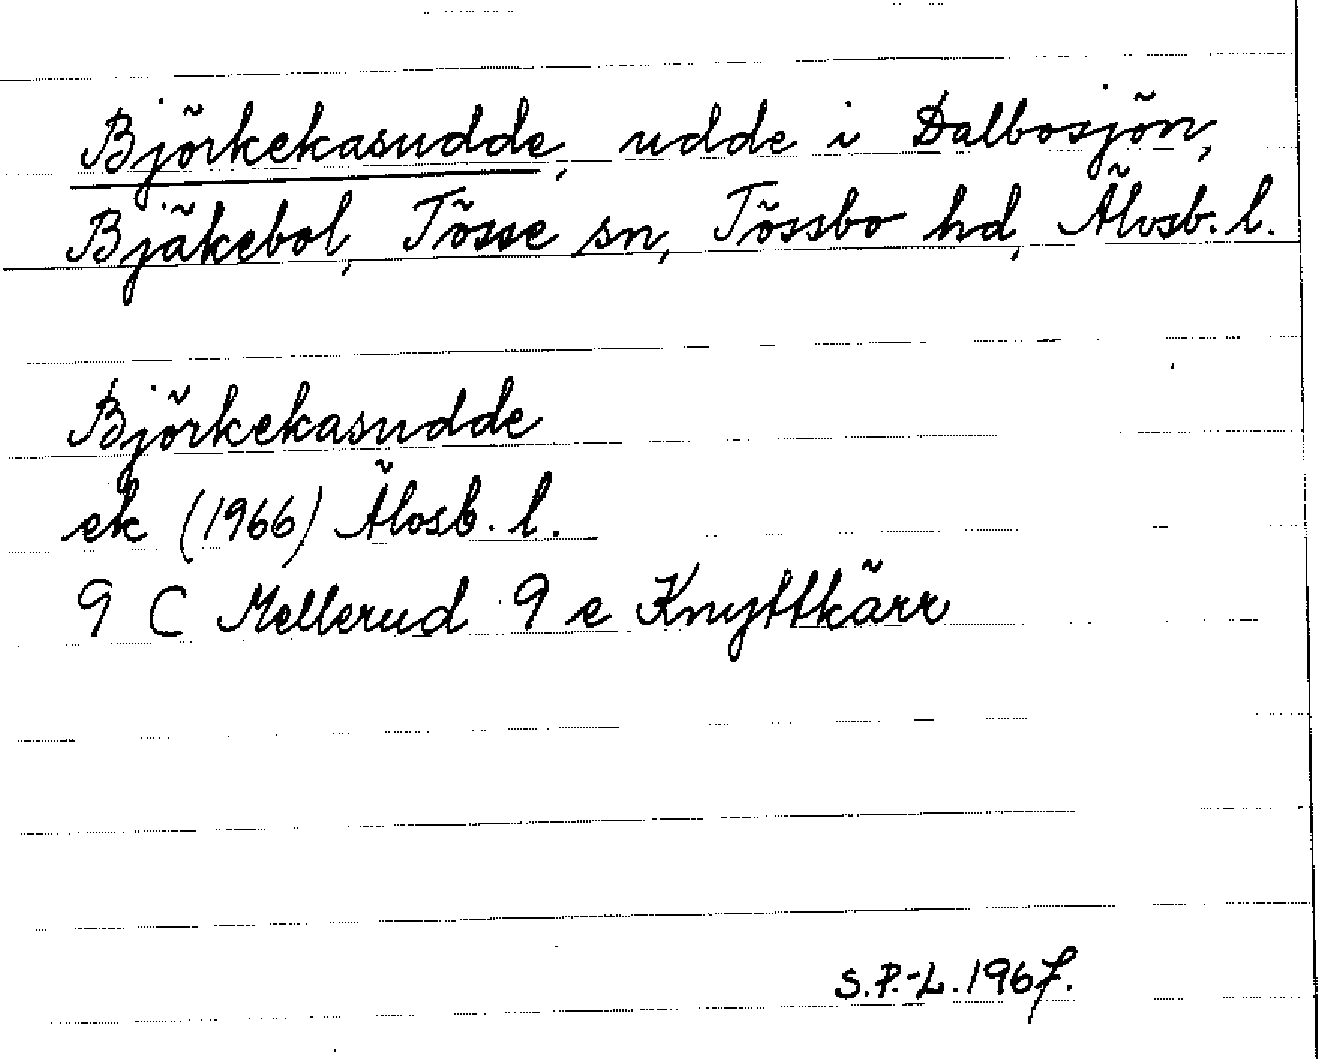 Björkekasudde, udde i Dalbosjön,
Bjäkebol, Tösse sn, Tössbo hd, Älvsb. l.
Björkekasudde
ek (1966) Älvsb. l.
9 C Mellerud 9 e Knyttkärr
S.P.-L. 1967.